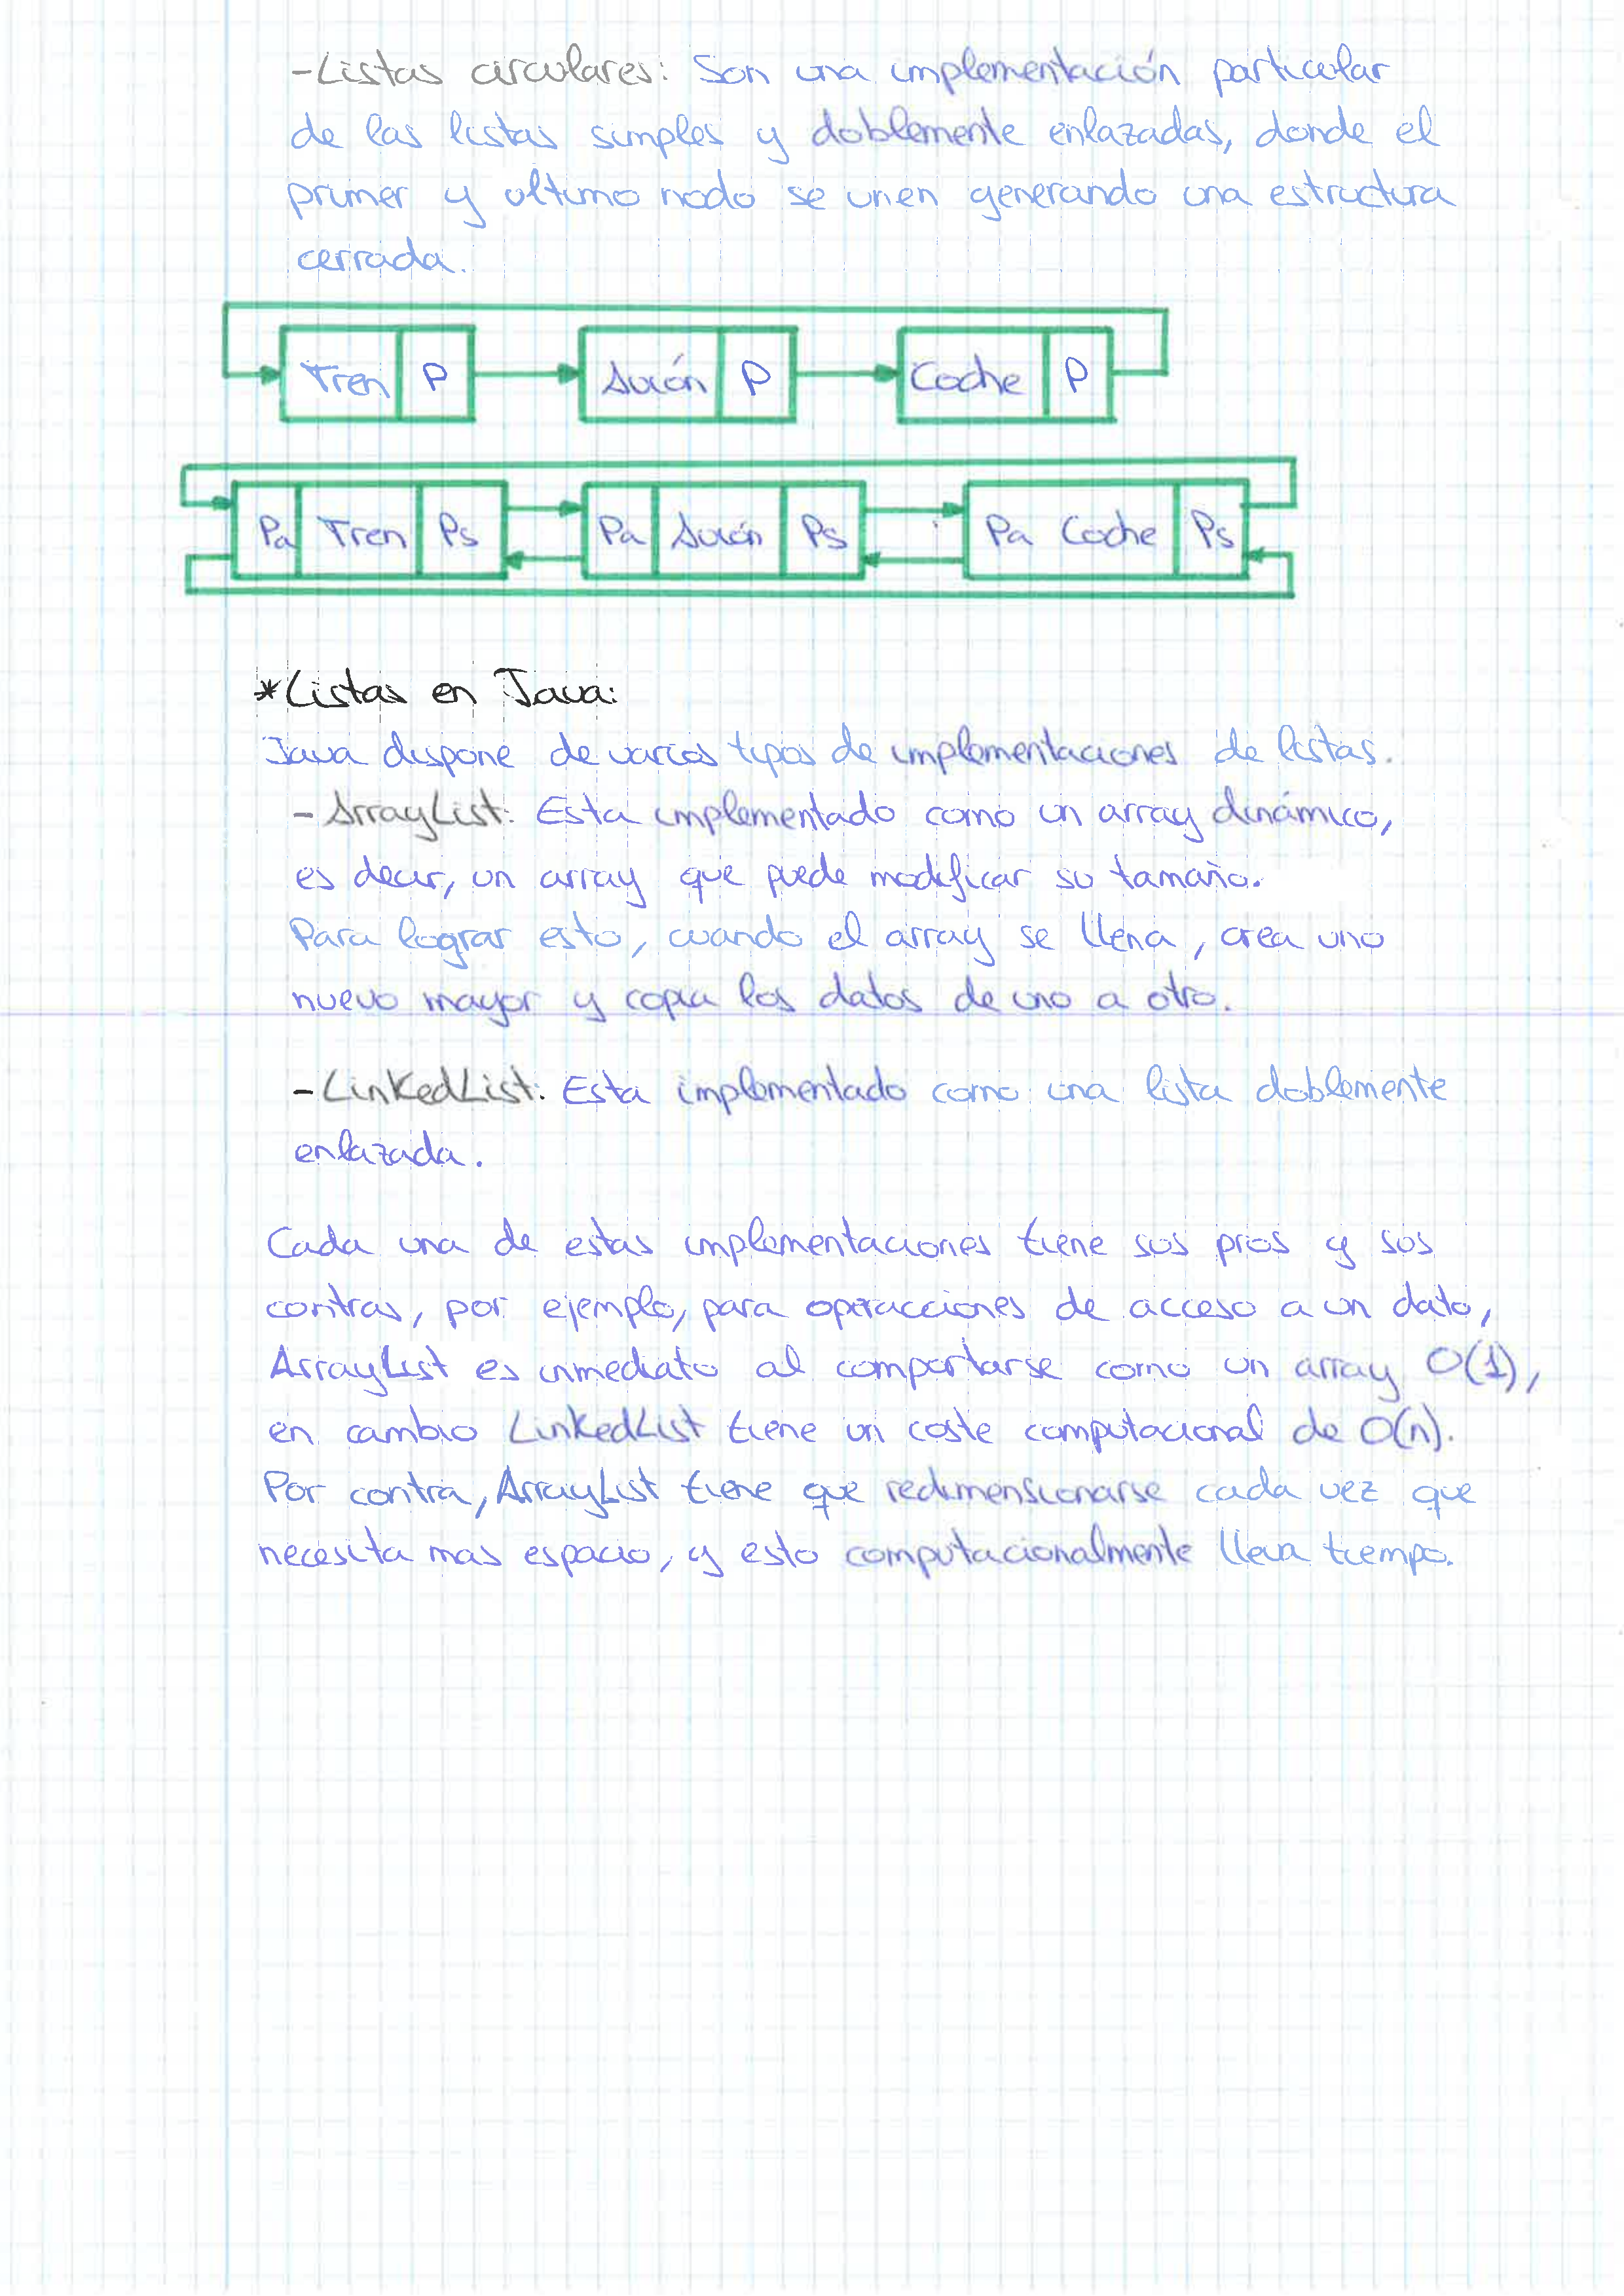 -Listas circulares: Son una implementación particular
de las listas simples y doblemente enlazadas, donde el
primer y ultimo nodo se unen generando una estructura
cerrada.
Tren P Avión P Coche P
Pa Tren Ps Pa Avión Ps Pa Coche Ps
*Listas en Java:
Java dispone de varios tipos de implementaciones de listas.
- ArrayList: Esta implementado como un array dinámico,
es decir, un array que puede modificar su tamaño.
Para lograr esto, cuando el array se llena, crea uno
nuevo mayor y copia los datos de uno a otro.
- LinkedList: Esta implementado como una lista doblemente
enlazada.
Cada una de estas implementaciones tiene sus pros y sus
contras, por ejemplo, para operacciones de acceso a un dato,
ArrayList es inmediato al comportarse como un array O(1),
en cambio LinkedList tiene un coste computacional de O(n).
Por contra, ArrayList tiene que redimensionarse cada vez que
necesita mas espacio, y esto computacionalmente lleva tiempo.